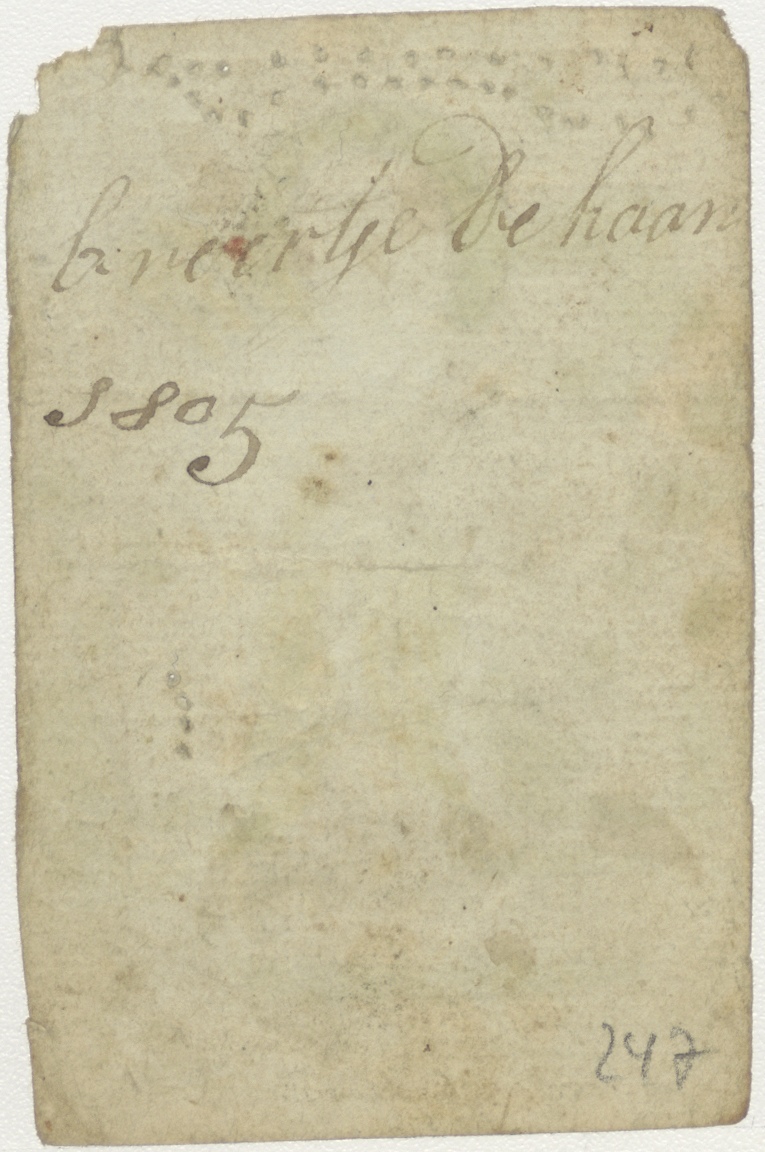 Greertje De haan
1805
247